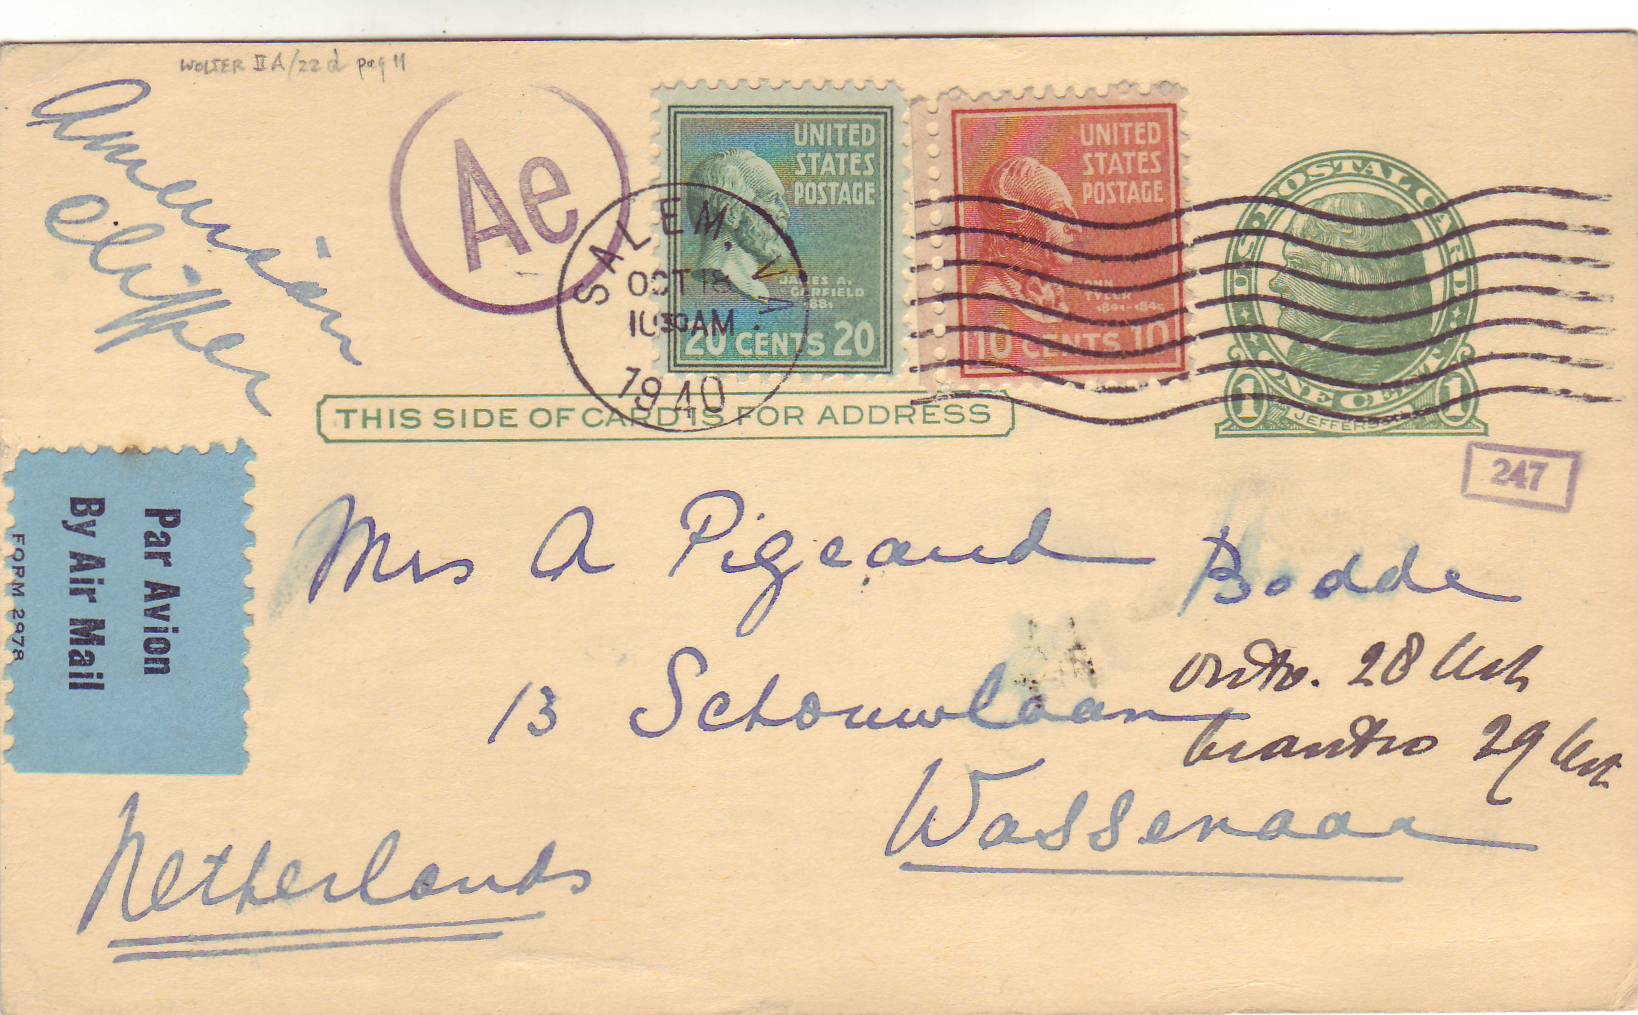 WOLTER II A/22d pag 11
American
Clipper
Ae
SALEM, VA
OCT 18
10 30 AM
1940
UNITED
STATES
POSTAGE
JAMES A.
GARFIELD
1881
20 CENTS 20
UNITED
STATES
POSTAGE
JOHN
TYLER
1841-1845
10 CENTS 10
U.S. POSTAL CARD
1 ONE CENT 1
JEFFERSON
THIS SIDE OF CARD IS FOR ADDRESS
247
Par Avion
By Air Mail
FORM 2978
Mrs A Pigeaud Bodde
13 Schouwlaan
Wassenaar
Netherlands
28
29